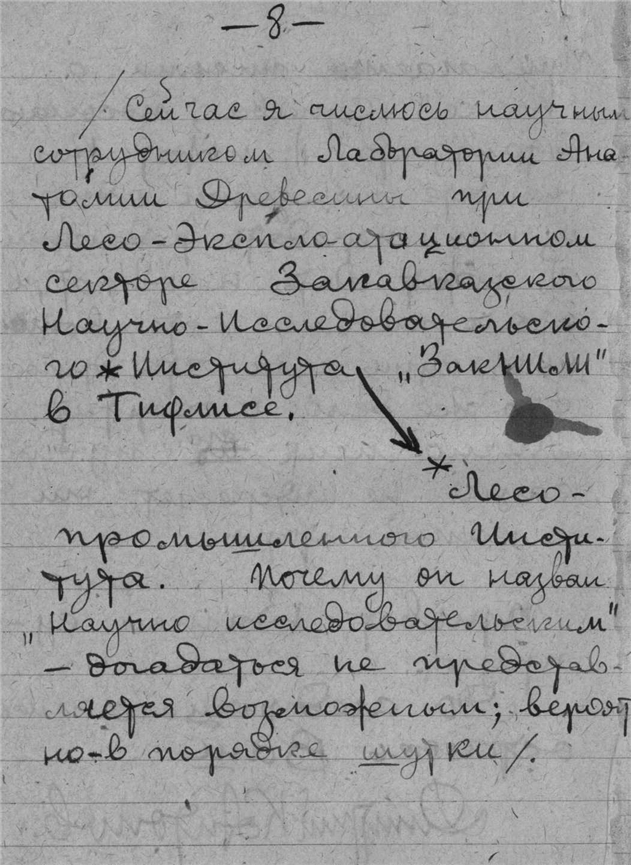 — 8 —
/ Сейчас я числюсь научным
сотрудником Лаборатории Ана-
томии Древесины при
Лесо-Эксплоатационном
секторе Закавказского
Научно-Исследовательско-
го * Института „ЗакНИЛИ"
в Тифлисе.
* Лесо-
промышленного Инсти-
тута. Почему он назван
„Научно исследовательским"
— догадаться не представ-
ляется возможным; вероят
но-в порядке шутки /.